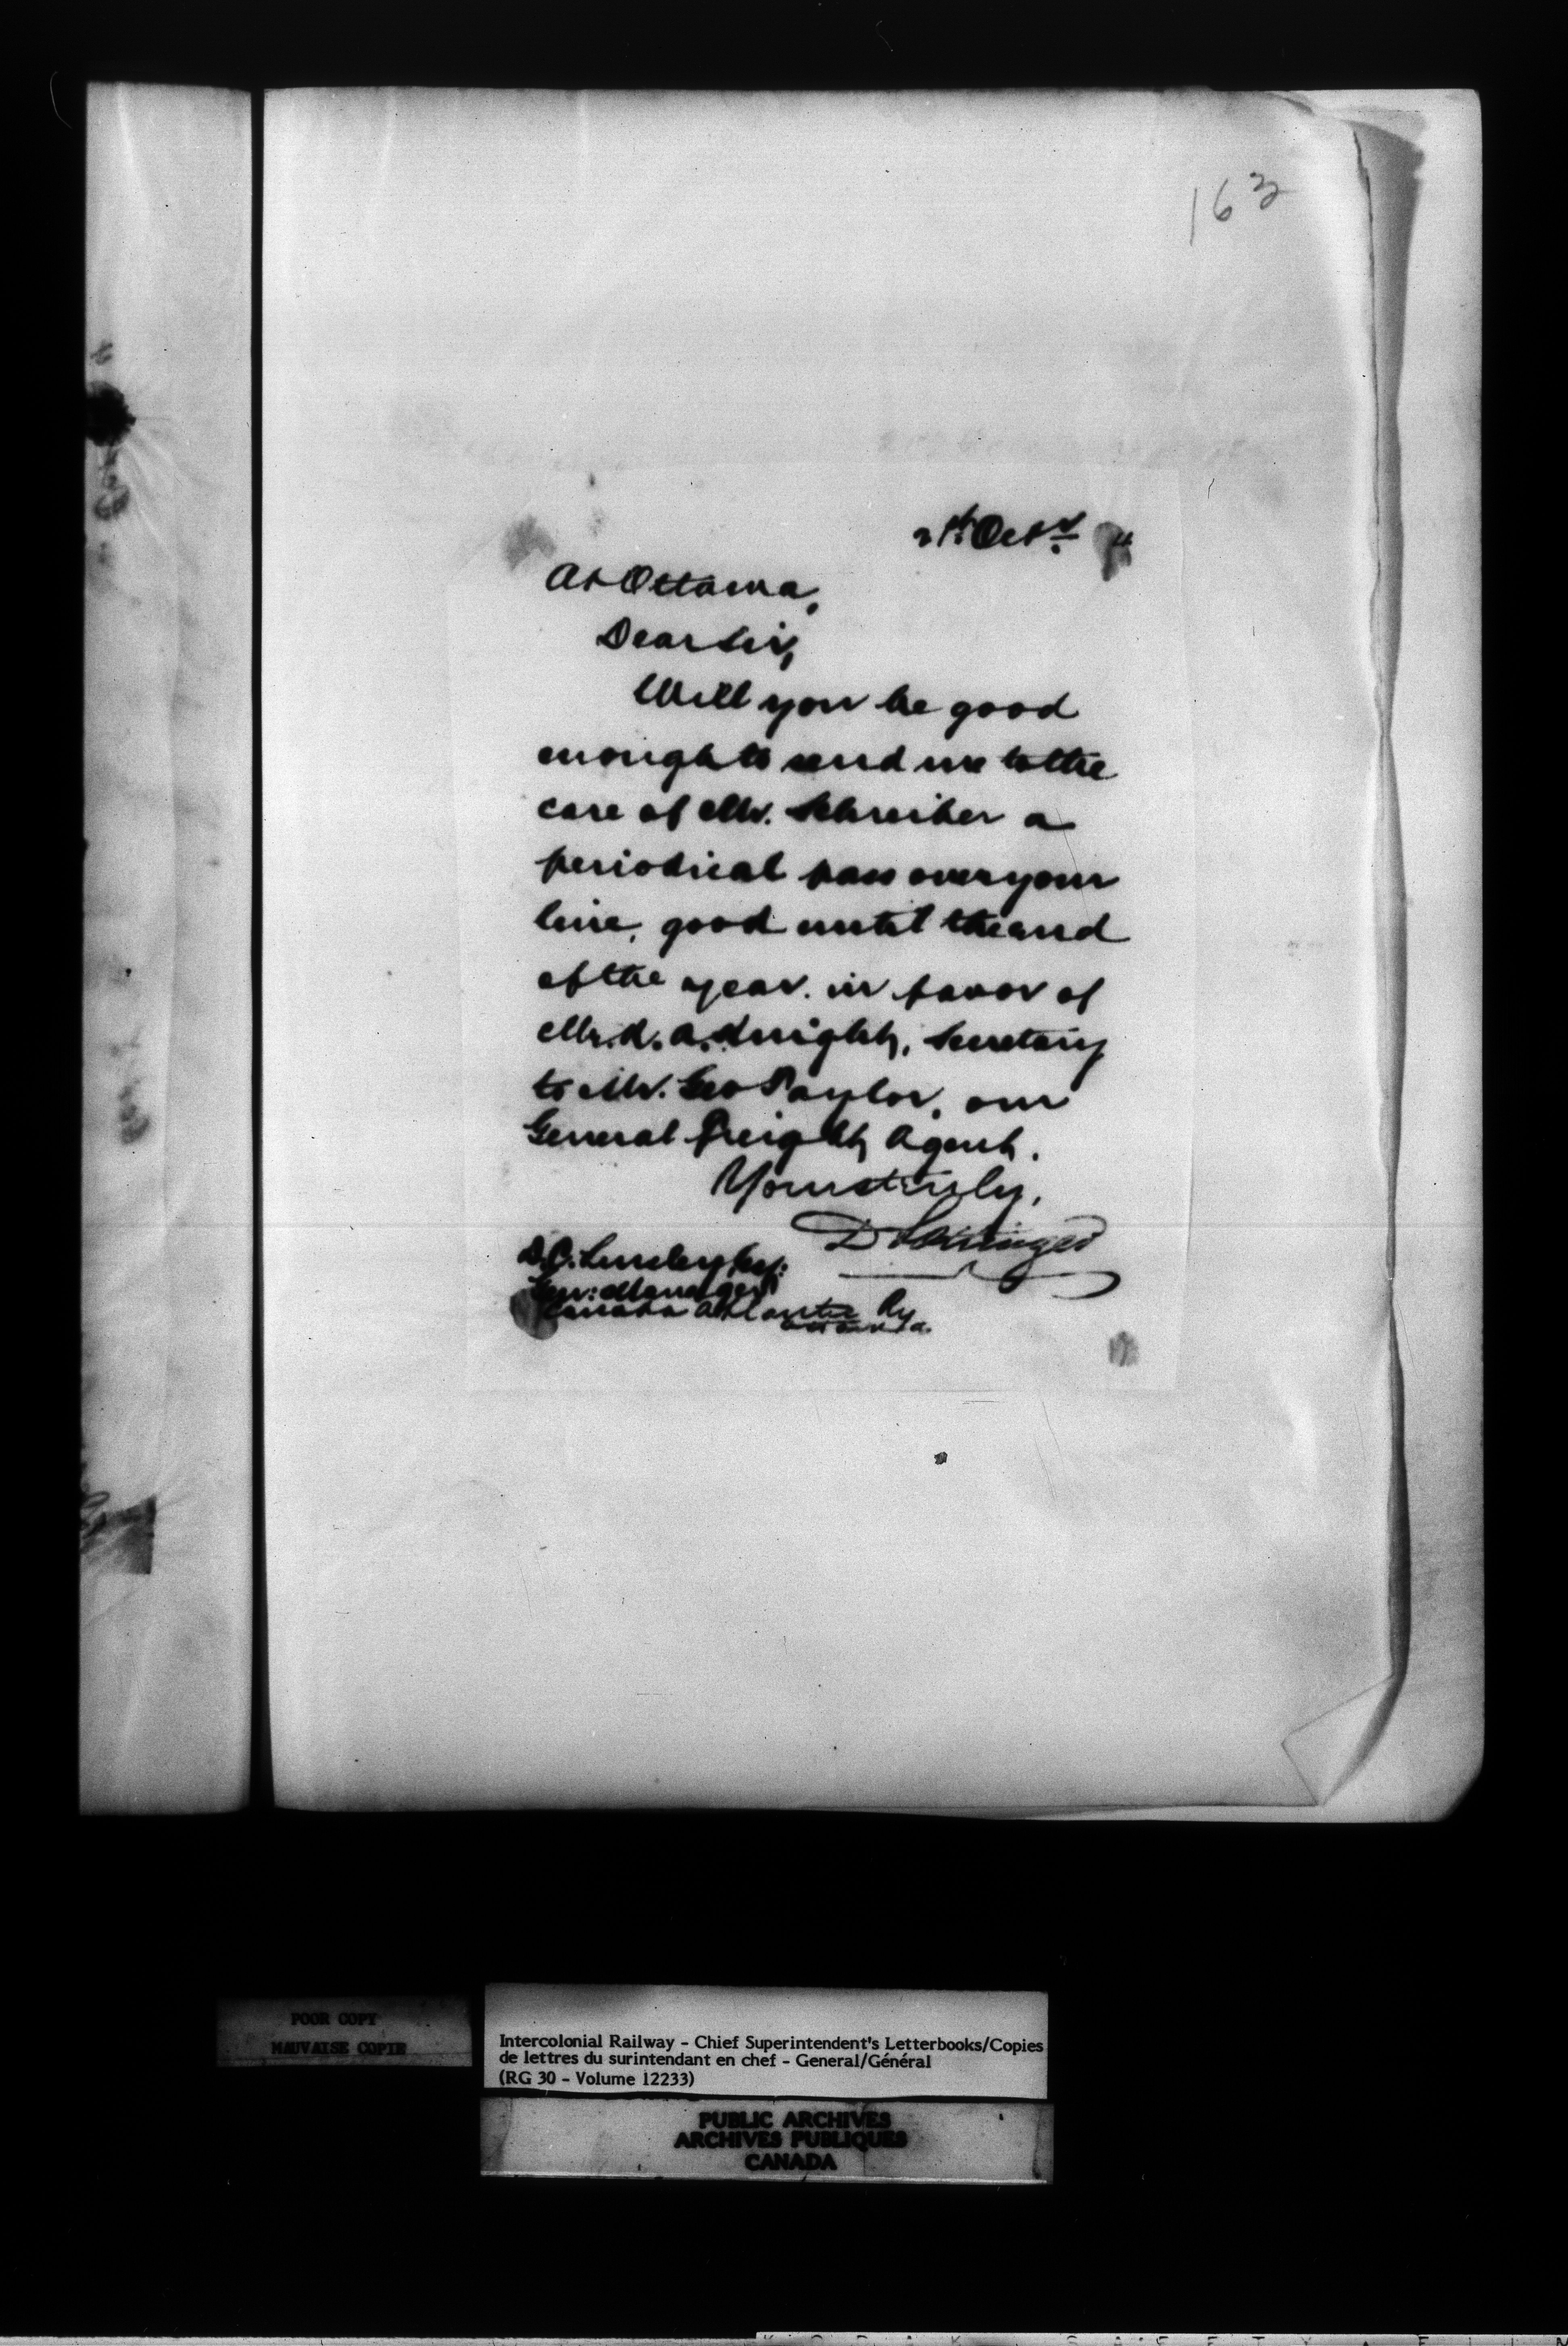 163
21st Octr
At Ottawa,
Dear Sir,
Will you be good
enough to send me to the
care of Mr. Schreiber a
periodical pass over your
line, good until the end
of the year. in favor of
Mr. Secretary
to Mr. Geo Taylor, our
General Freight Agent.
Yours truly,
D Pottinger
D.C. Linsley Esq:
Gen: Manager
Canada Atlantic Ry
Ottawa
POOR COPY
MAUVAISE COPIE
Intercolonial Railway - Chief Superintendent's Letterbooks/Copies
de lettres du surintendant en chef - General/Général
(RG 30 - Volume 12233)
PUBLIC ARCHIVES
ARCHIVES PUBLIQUES
CANADA